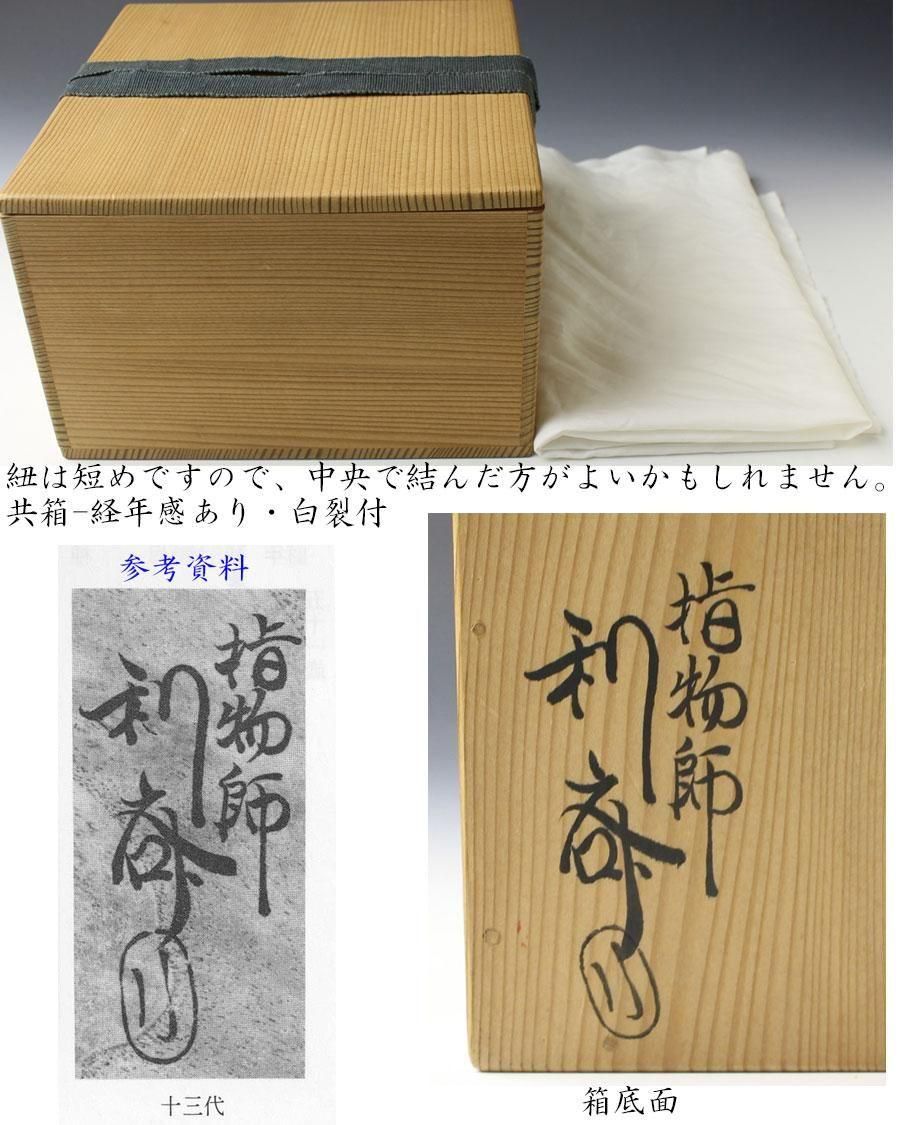 紐は短めですので、中央で結んだ方がよいかもしれません。
共箱-経年感あり・白裂付
参考資料
指物師
利斎
十三代
指物師
利斎
箱底面